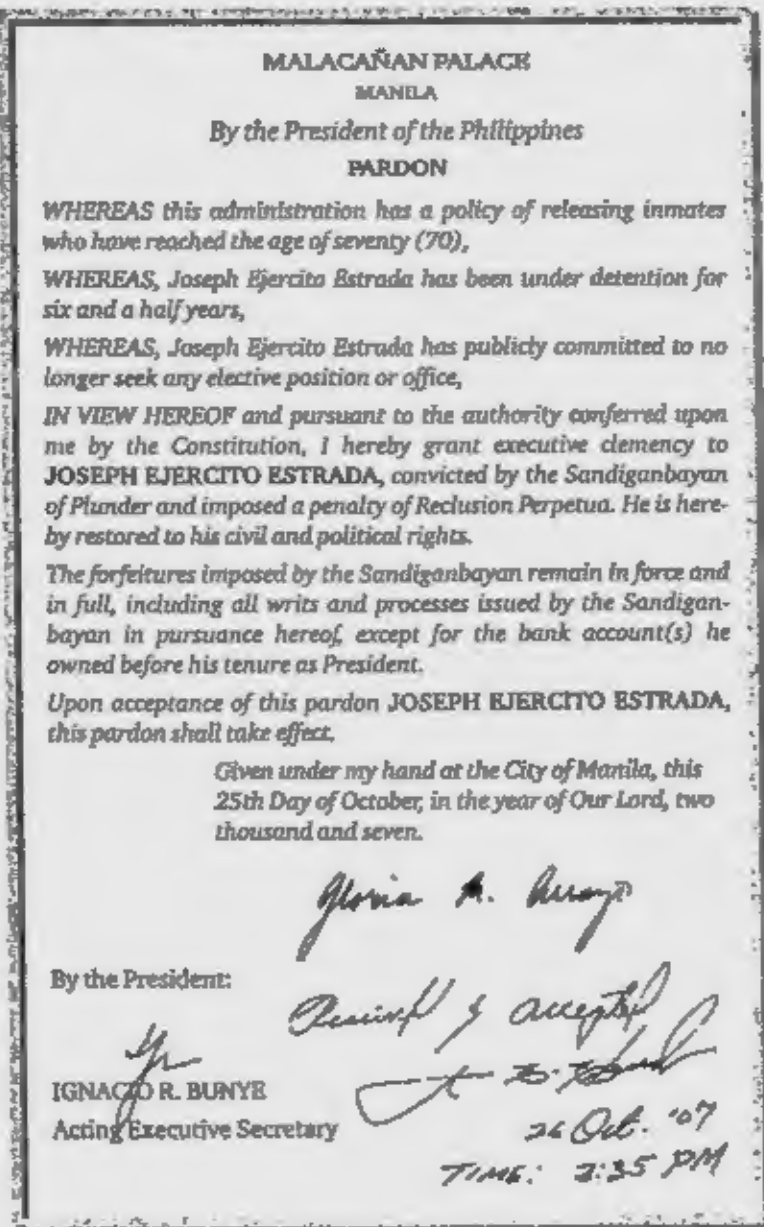 MALACAÑAN PALACE
MANILA
By the President of the Philippines
PARDON
WHEREAS this administration has a policy of releasing inmates
who have reached the age of seventy (70),
WHEREAS, Joseph Ejercito Estrada has been under detention for
six and a half years,
WHEREAS, Joseph Ejercito Estrada has publicly committed to no
longer seek any elective position or office,
IN VIEW HEREOF and pursuant to the authority conferred upon
me by the Constitution, I hereby grant executive clemency to
JOSEPH EJERCITO ESTRADA, convicted by the Sandiganbayan
of Plunder and imposed a penalty of Reclusion Perpetua. He is here-
by restored to his civil and political rights.
The forfeitures imposed by the Sandiganbayan remain in force and
in full, including all writs and processes issued by the Sandigan-
bayan in pursuance hereof, except for the bank account(s) he
owned before his tenure as President.
Upon acceptance of this pardon JOSEPH EJERCITO ESTRADA,
this pardon shall take effect.
Given under my hand at the City of Manila, this
25th Day of October, in the year of Our Lord, two
thousand and seven.
Gloria A. Arroyo
By the President:
Received & accepted
IGNACIO R. BUNYE
Acting Executive Secretary
26 Oct. '07
TIME: 3:35 PM